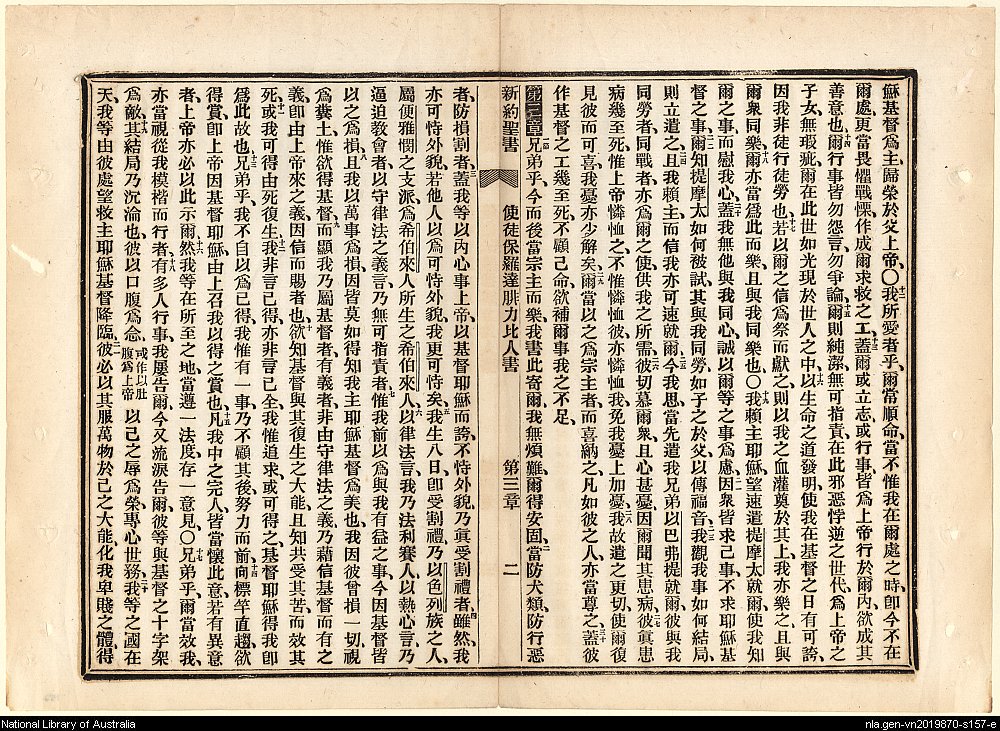 穌基督爲主、歸榮於父上帝、〇我所愛者乎、爾當順命、當不惟我在爾處之時、卽今不在
爾處、更當畏懼戰慄、作成爾求救之工、蓋爾或立志、或行事、皆爲上帝行於爾內、欲成其
善意也、爾行事皆勿怨言、勿爭論、爾則純潔無可指責、在此邪惡悖逆之世代、爲上帝之
子女、無瑕疵、爾在此世、如光現於世人之中、以生命之道發明、使我在基督之日有可誇、
因我非徒行徒勞也、若以爾之信爲祭而獻之、則以我之血灌奠於其上、我亦樂之、且與
爾衆同樂、爾亦當爲此而樂、且與我同樂也、〇我賴主耶穌、望速遣提摩太就爾、使我知
爾之事、而慰我心、蓋我無他與我同心、誠以爾等之事爲慮、因衆皆求己事、不求耶穌基
督之事、爾知提摩太如何被試、其與我同勞、如子之於父、以傳福音、我觀我事如何結局、
則立遣之、且我賴主而信我亦可速就爾、今我思當先遣我兄弟以巴弗提就爾、彼與我
同勞者、同戰者、亦爲爾之使、供我之所需、彼切慕爾衆、且心甚憂、因爾聞其患病、彼眞患
病、幾至死、惟上帝憐恤之、不惟憐恤彼、亦憐恤我、免我憂上加憂、我故遣之更切、使爾復
見彼而可喜、我憂亦少解矣、爾當以之爲宗主者、而喜納之、凡如彼之人亦當尊之、蓋彼
作基督之工幾至死、不顧己命、欲補爾事我之不足、
第三章 兄弟乎、今而後當宗主而樂、我書此寄爾、我無煩難、爾得安固、當防犬類、防行惡
新約聖書 使徒保羅達腓力比人書 第三章 二
者、防損割者、蓋我等以內心事上帝、以基督耶穌而誇、不恃外貌、乃眞受割禮者、雖然、我
亦可恃外貌、若他人以爲可恃外貌、我更可恃矣、我生八日、卽受割禮、乃以色列族之人、
屬便雅憫之支派、爲希伯來人所生之希伯來人、以律法言、我乃法利賽人、以熱心言、乃
逼迫敎會者、以守律法之義言、乃無可指責者、惟我前以爲與我有益之事、今因基督皆
以之爲損、且我以萬事爲損、因皆莫如得知我主耶穌基督爲美也、我因彼曾損一切、視
爲糞土、惟欲得基督、而顯我乃屬基督者、有義者、非由守律法之義、乃藉信基督而有之
義、卽由上帝來之義、因信而賜者也、欲知基督與其復生之大能、且知共受其苦、而效其
死、或我可得由死復生、我非言已得、亦非言已全、我惟追求、或可得之、基督耶穌得我、卽
爲此故也、兄弟乎、我不自以爲已得、我惟有一事、乃不顧其後、努力而前、向標竿直趨、欲
得賞、卽上帝因基督耶穌、由上召我以得之賞也、凡我中之完人、皆當懷此意、若有異意
者、上帝亦必以此示爾、然我等在所至之地、當遵一法度、存一意見、〇兄弟乎、爾當效我、
亦當視從我模楷而行者、有多人行事、我屢告爾、今又流淚告爾、彼等與基督之十字架
爲敵、其結局乃沉淪也、彼以口腹爲念、或作以肚腹爲上帝 以己之辱爲榮、專心世務、我等之國在
天、我等由彼處望救主耶穌基督降臨、彼必以其服萬物於己之大能、化我卑賤之體、得
National Library of Australia
nla.gen-vn2019870-s157-e